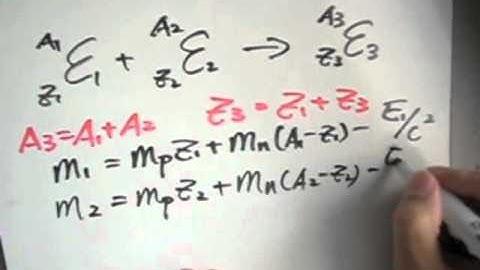 ^{A_1}_{Z_1}ℰ_1 + ^{A_2}_{Z_2}ℰ_2 → ^{A_3}_{Z_3}ℰ_3
A_3=A_1+A_2 Z_3=Z_1+Z_3
m_1 = m_pZ_1+m_n(A_1-Z_1)-E_1/c^2
m_2 = m_pZ_2+m_n(A_2-Z_2)-